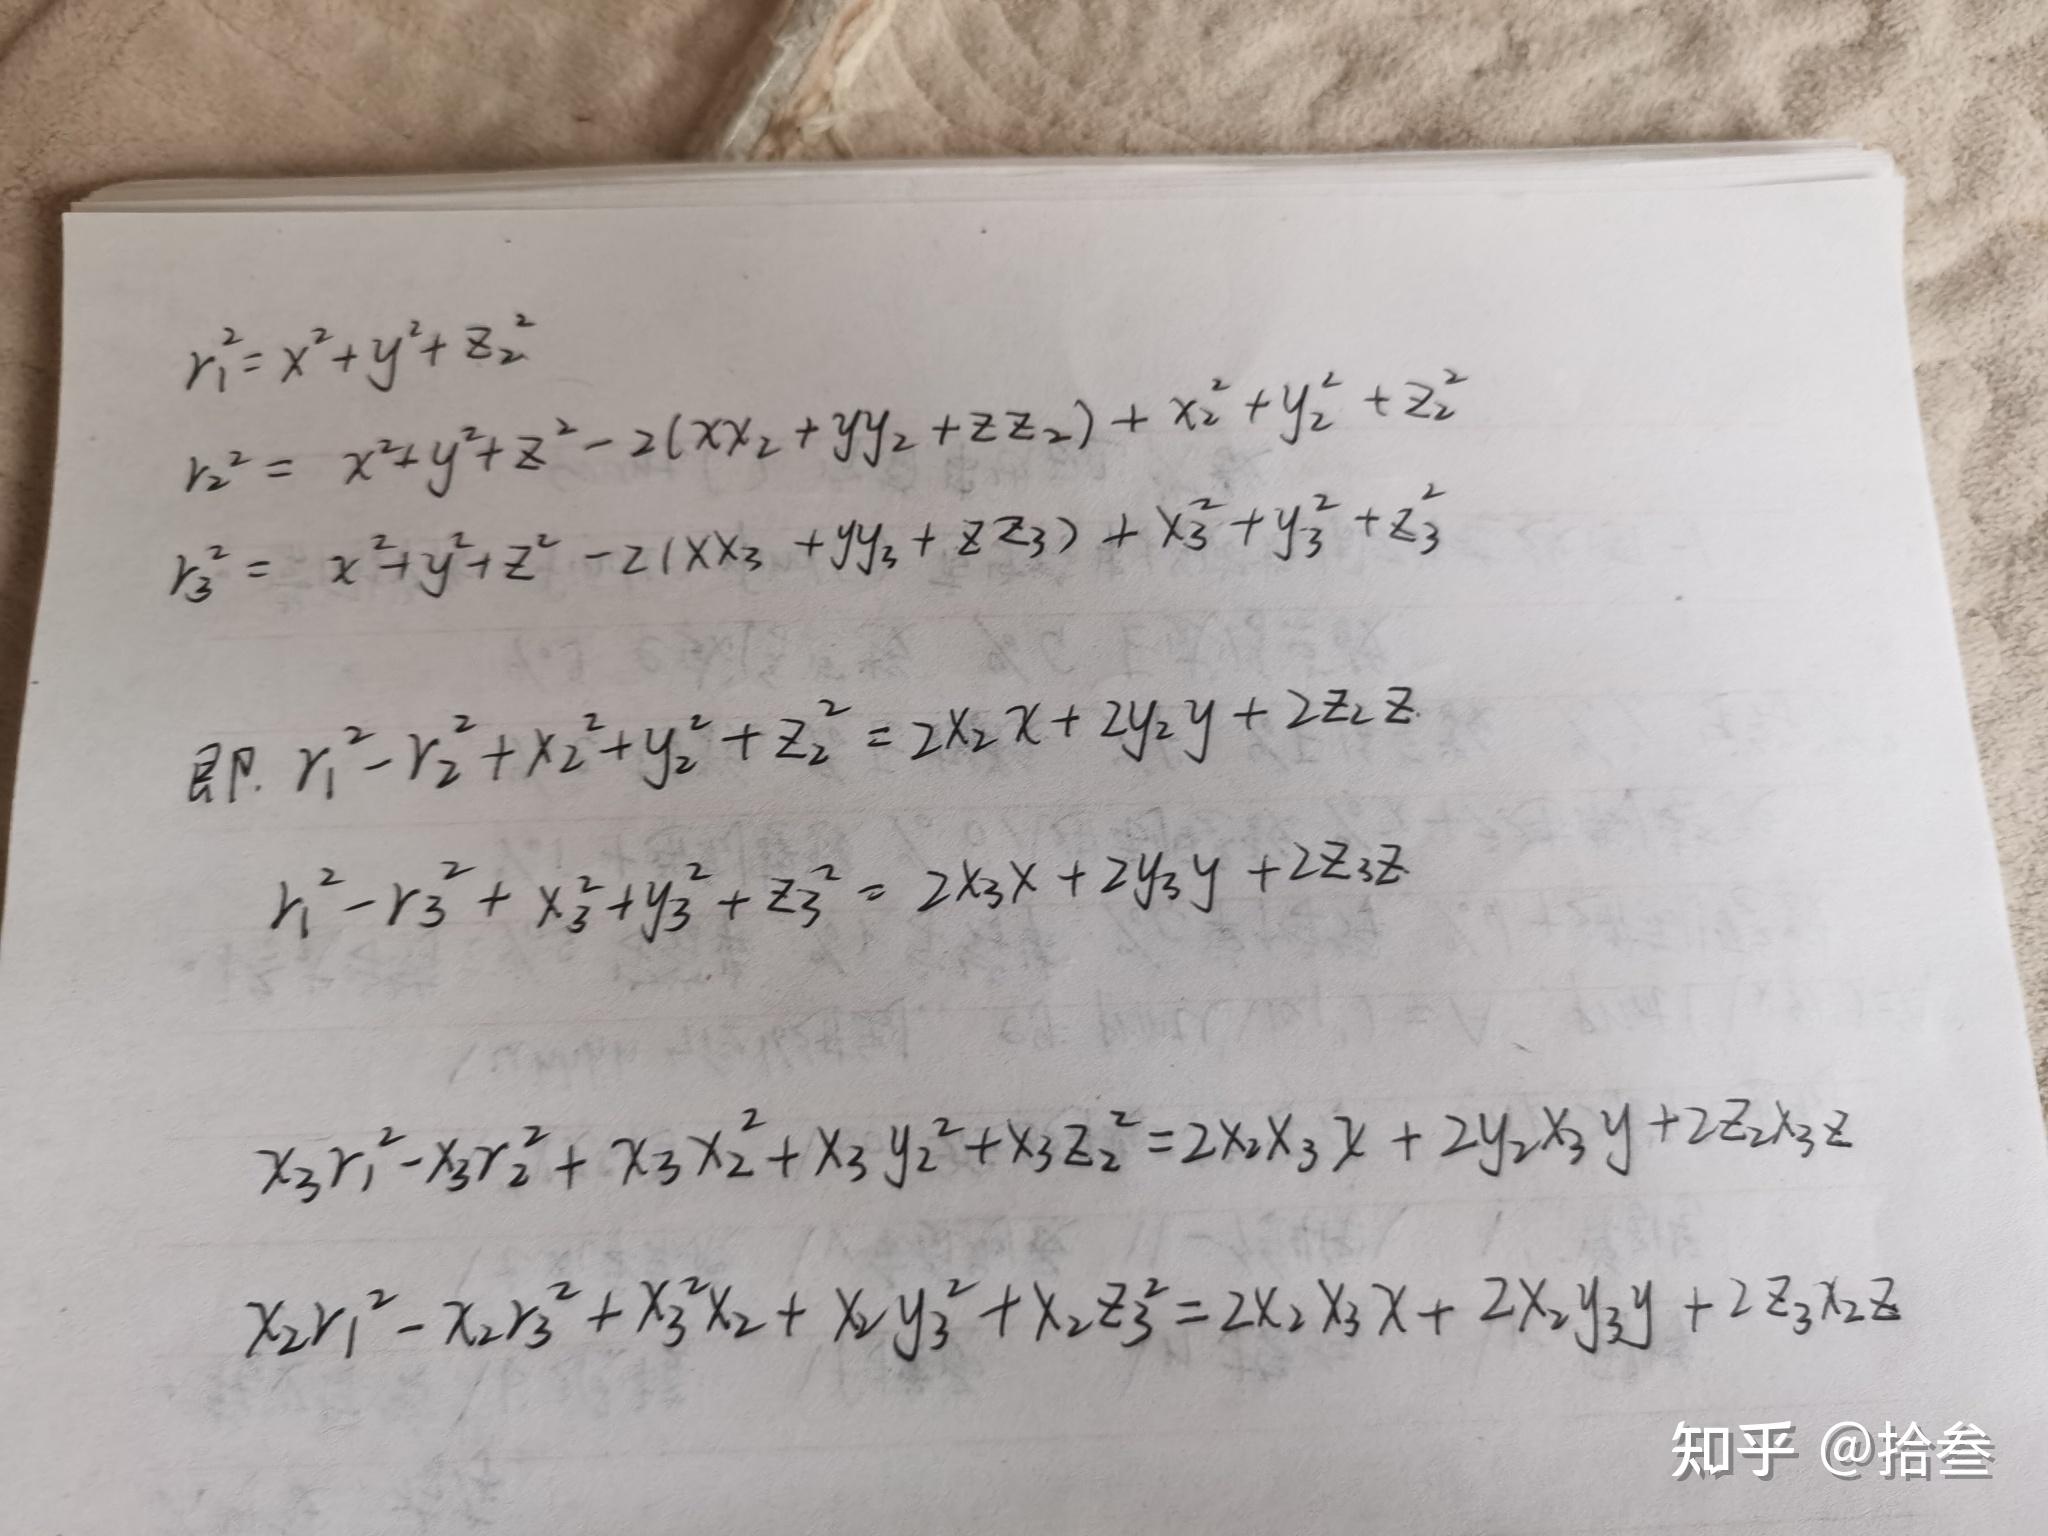 r₁² = x² + y² + z₂²
r₂² = x² + y² + z² - 2(xx₂ + yy₂ + zz₂) + x₂² + y₂² + z₂²
r₃² = x² + y² + z² - 2(xx₃ + yy₃ + zz₃) + x₃² + y₃² + z₃²
即. r₁² - r₂² + x₂² + y₂² + z₂² = 2x₂x + 2y₂y + 2z₂z
r₁² - r₃² + x₃² + y₃² + z₃² = 2x₃x + 2y₃y + 2z₃z
x₃r₁² - x₃r₂² + x₃x₂² + x₃y₂² + x₃z₂² = 2x₂x₃x + 2y₂x₃y + 2z₂x₃z
x₂r₁² - x₂r₃² + x₃²x₂ + x₂y₃² + x₂z₃² = 2x₂x₃x + 2x₂y₃y + 2z₃x₂z
知乎 @拾叁